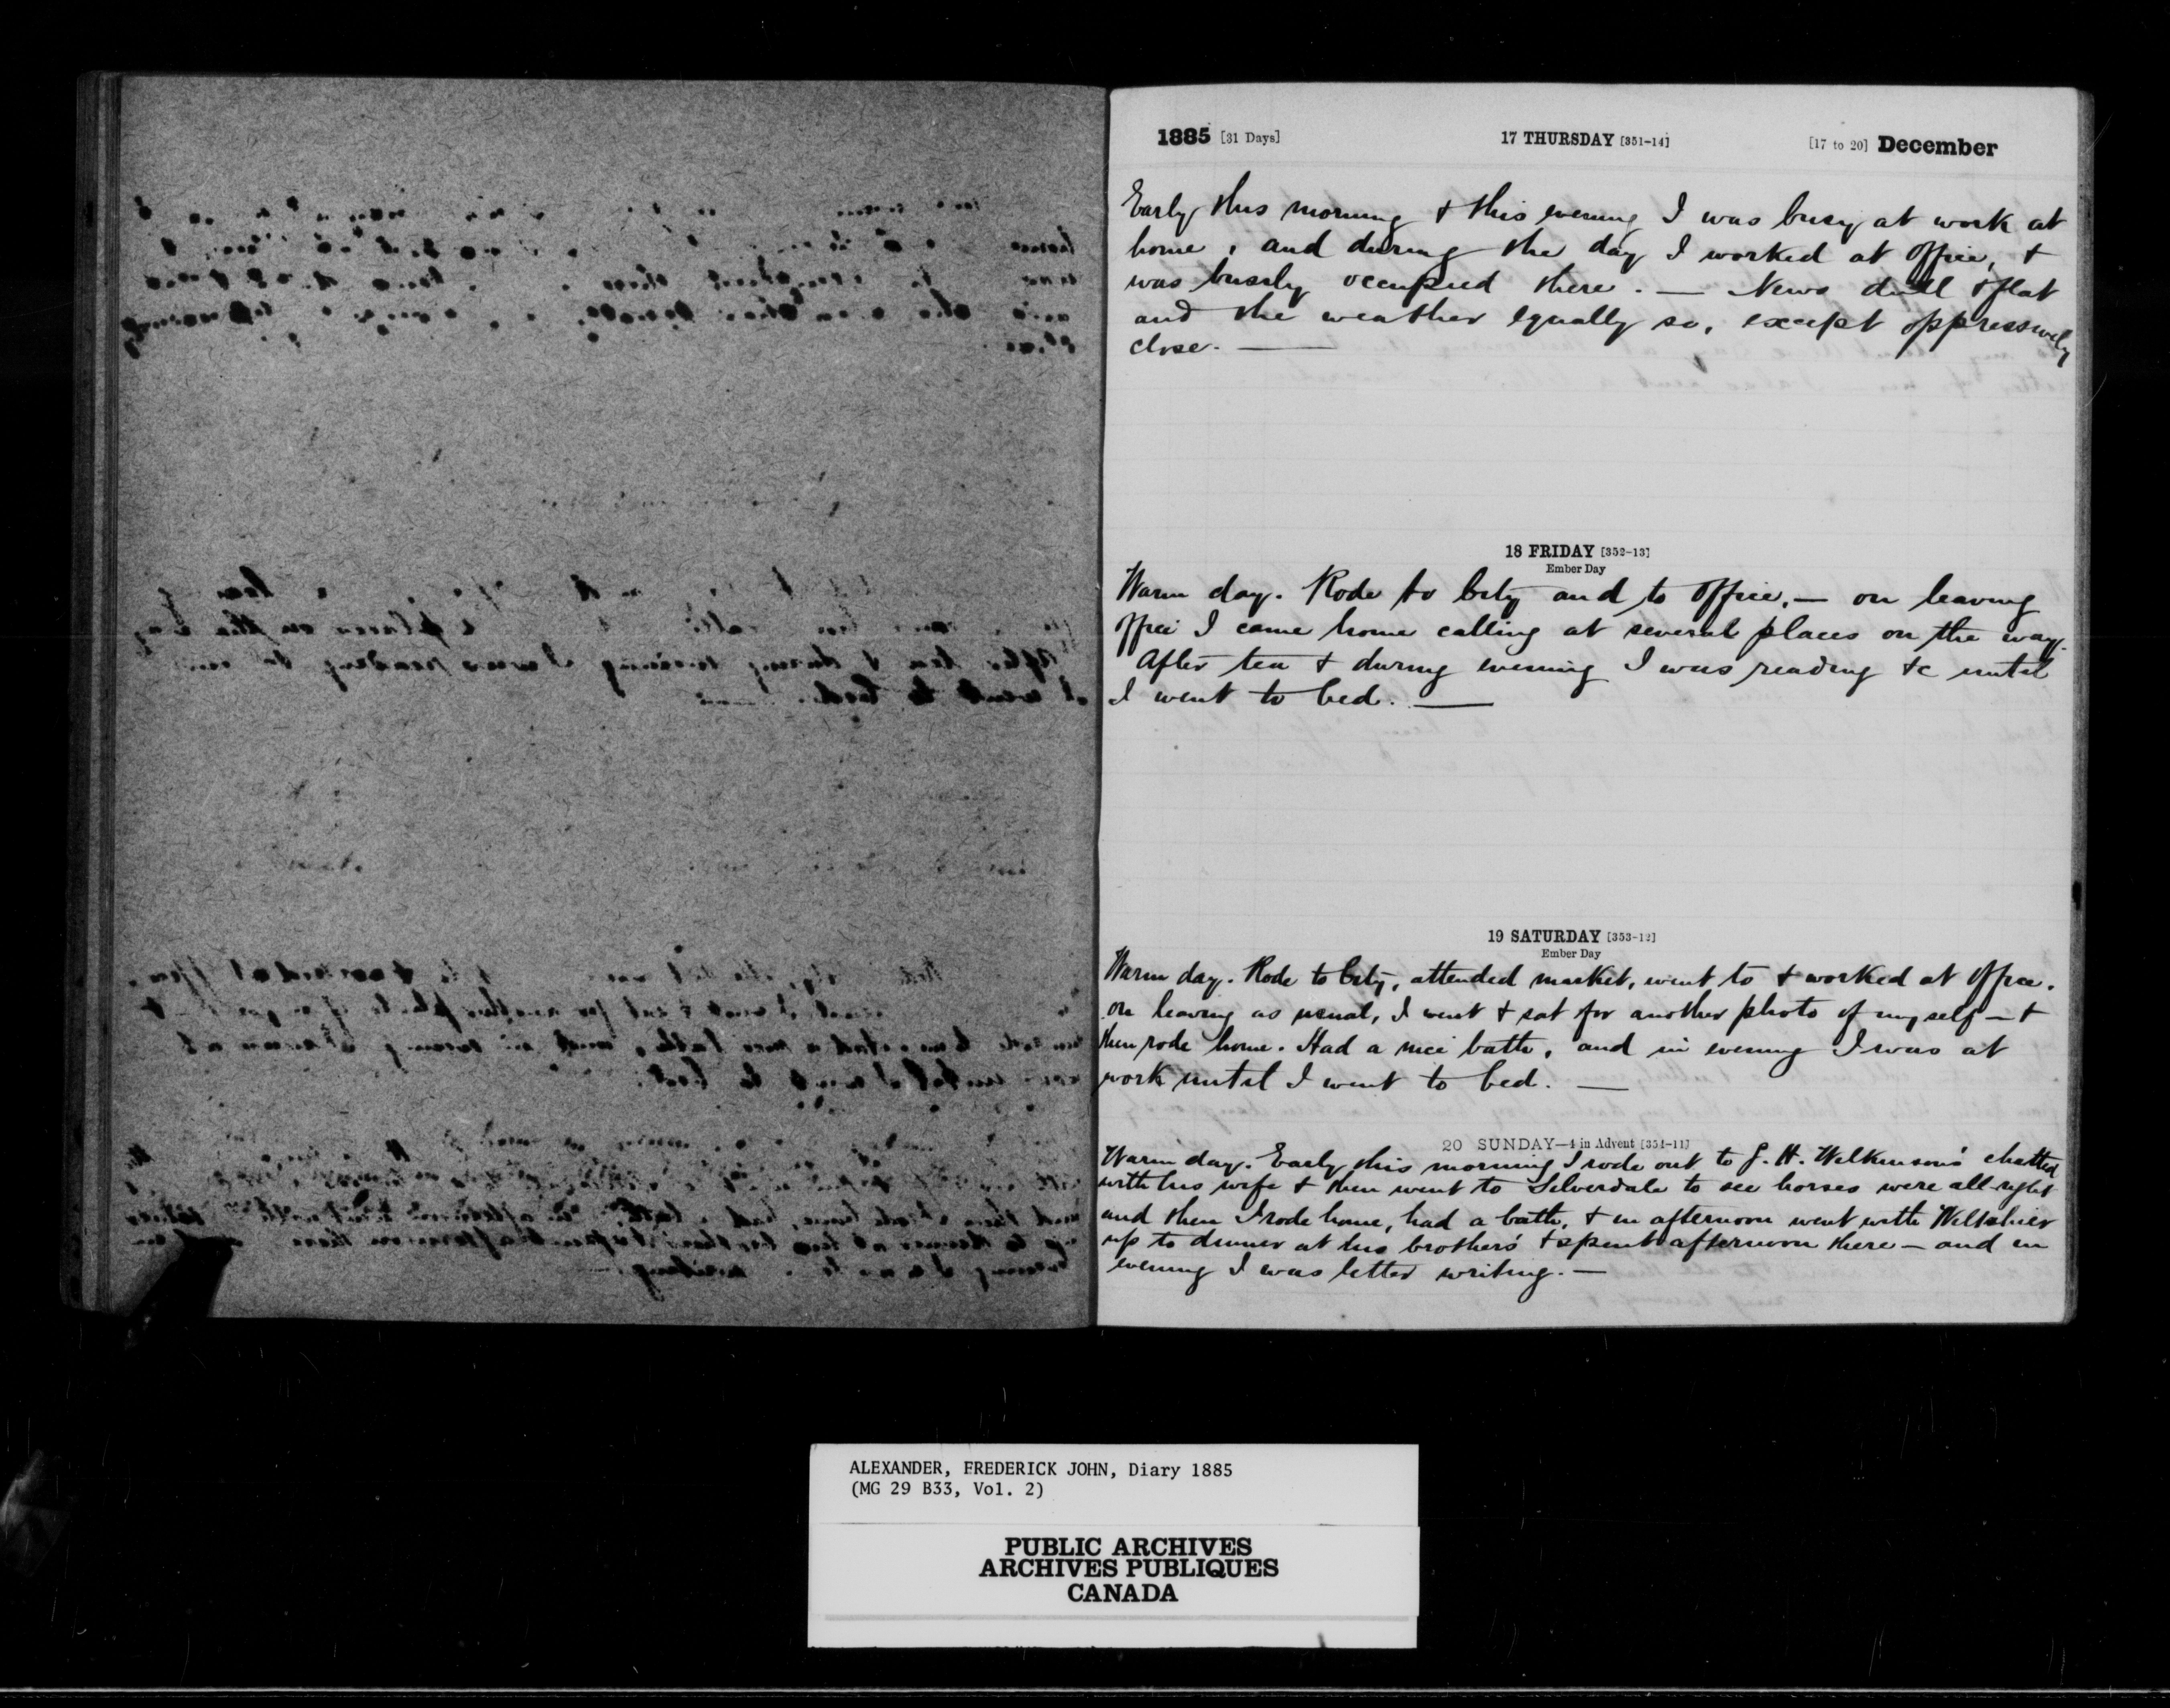 1885 [31 Days] 17 THURSDAY [351-14] [17 to 20] December
Early this morning & this evening I was busy at work at
home, and during the day I worked at office, &
was busily occupied there. — News dull & flat
and the weather equally so, except oppressively
close. —
18 FRIDAY [352-13]
Ember Day
Warm day. Rode to City and to office, — on leaving
office I came home calling at several places on the way.
After tea & during evening I was reading &c until
I went to bed. —
19 SATURDAY [353-12]
Ember Day
Warm day. Rode to City, attended market, went to & worked at office.
on leaving as usual, I went & sat for another photo of myself — &
then rode home. Had a nice bath, and in evening I was at
work until I went to bed. —
20 SUNDAY—4 in Advent [354-11]
Warm day. Early this morning I rode out to J. H. Wilkinson's chatted
with his wife & then went to Silverdale to see horses were all right
and then I rode home, had a bath, & in afternoon went with Wiltshier
up to dinner at his brother's & spent afternoon there — and in
evening I was letter writing. —
ALEXANDER, FREDERICK JOHN, Diary 1885
(MG 29 B33, Vol. 2)
PUBLIC ARCHIVES
ARCHIVES PUBLIQUES
CANADA